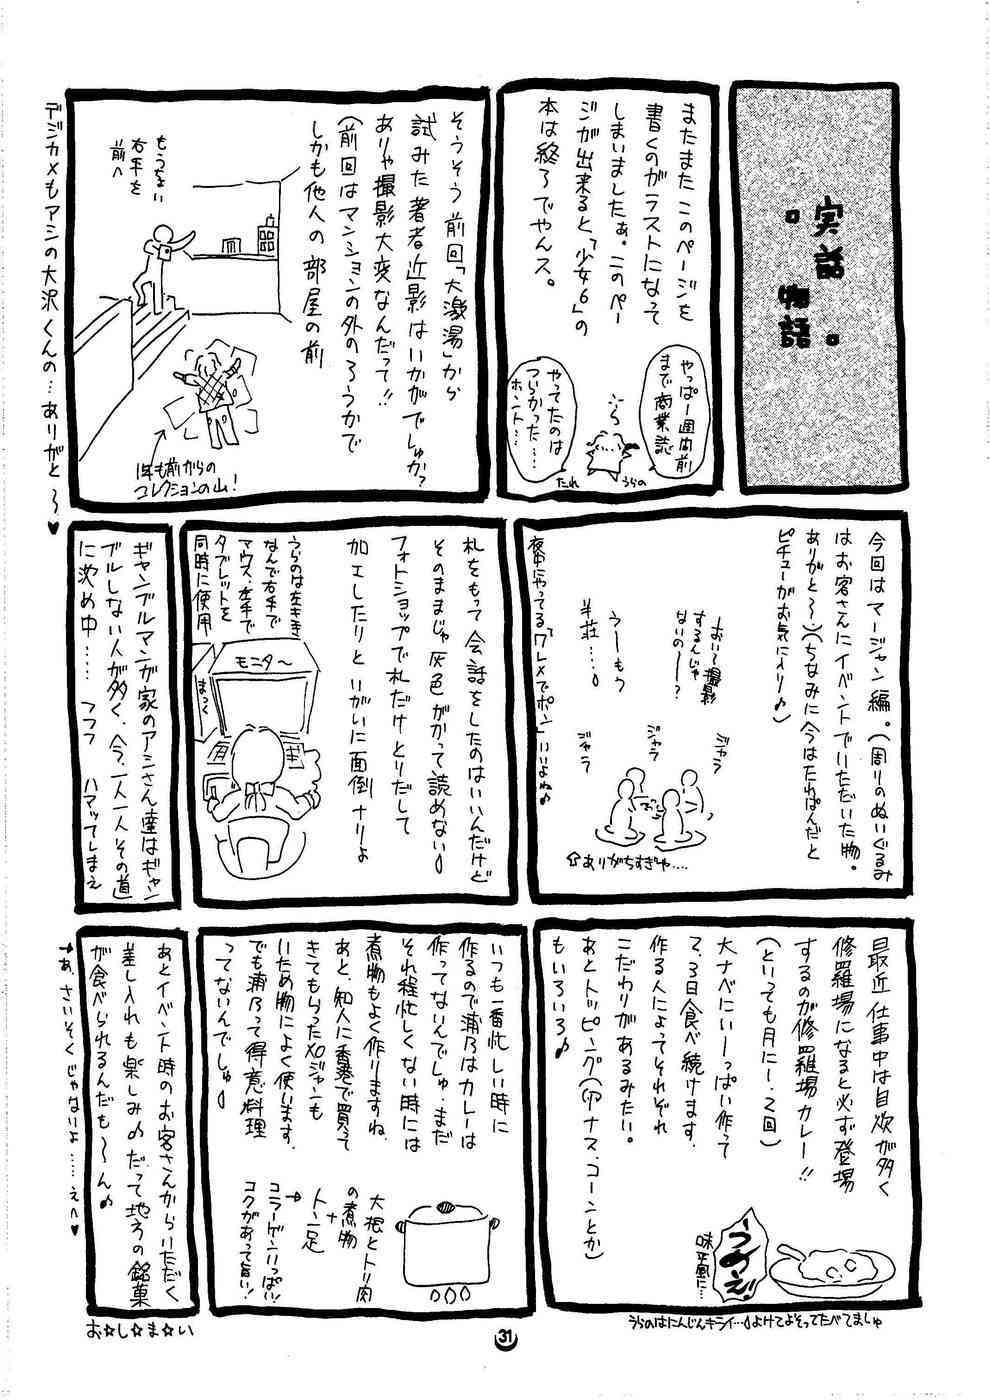 実話
物語
またまたこのページンを
書くのがラストになって
しまいましたぁ。このペー
ジが出来ると「少女6」の
本は終了でやんス。
やっぱ一週間前
まで商業誌
やってたのは
つらかった……
ホント……
うらの
たれ
そうそう前回「大激湯」から
試みた著者近影はいかがでしゅか?
ありゃ撮影大変なんだって!!
(前回はマンションの外のろうかで
しかも他人の部屋の前
もうちょい
右手を
前へ
1年も前からの
コレクションの山!
デジカメもアシの大沢くんの…ありがと〜♥
今回はマージャン編。(周りのぬいぐるみ
はお客さんにイベントでいただいた物。
ありがと〜)(ちなみに今はたれぱんだと
ピチューがお気に入り♪)
おいて撮影
するんじゃ
ないのー?
うーもう
半荘…
ジャラ
ジャラ
☆ありがちすぎや….
夜中にやってる「ワレメでポン」いいよね♪
札をもって会話をしたのはいいんだけど
そのままじゃ灰色がかって読めない
フォトショップで札だけとりだして
加工したりといがいに面倒ナリよ
うらのは左きき
なんで右手で
マウス、左手で
タブレットを
同時に使用
モニタ〜
まっく
ギャンブルマンガ家のアシさん達はギャン
ブルしない人が多く、今、一人一人その道
に沈め中…… フフフ ハマッてしまえ
最近仕事中は自炊が多く
修羅場になると必ず登場
するのが修羅場カレー!!
(といっても月に1、2回)
大ナベにいーっぱい作って
2、3日食べ続けます。
作る人によってそれぞれ
こだわりがあるみたい。
あとトッピング(パイナス、コーンとか)
もいろいろ♪
うめぇ!
味平風に…
うらのはにんじんキライ…よけてよそってたべてましゅ
いつも一番忙しい時に
作るので浦乃はカレーは
作ってないんでしゅ。まだ
それ程忙しくない時には
煮物もよく作りますね。
あと、知人に香港で買って
きてもらったXOジャンも
いため物によく使います。
でも浦乃って得意料理
ってないんでしゅ
大根とトリ肉
の煮物
+
トン足
コラーゲンいっぱい!
コクがあって旨い!
あとイベント時のお客さんからいただく
差し入れも楽しみ♪だって地方の銘菓
が食べられるんだも〜ん♪
あ、さいそくじゃないよ……えへ♥
お☆し☆ま☆い
31